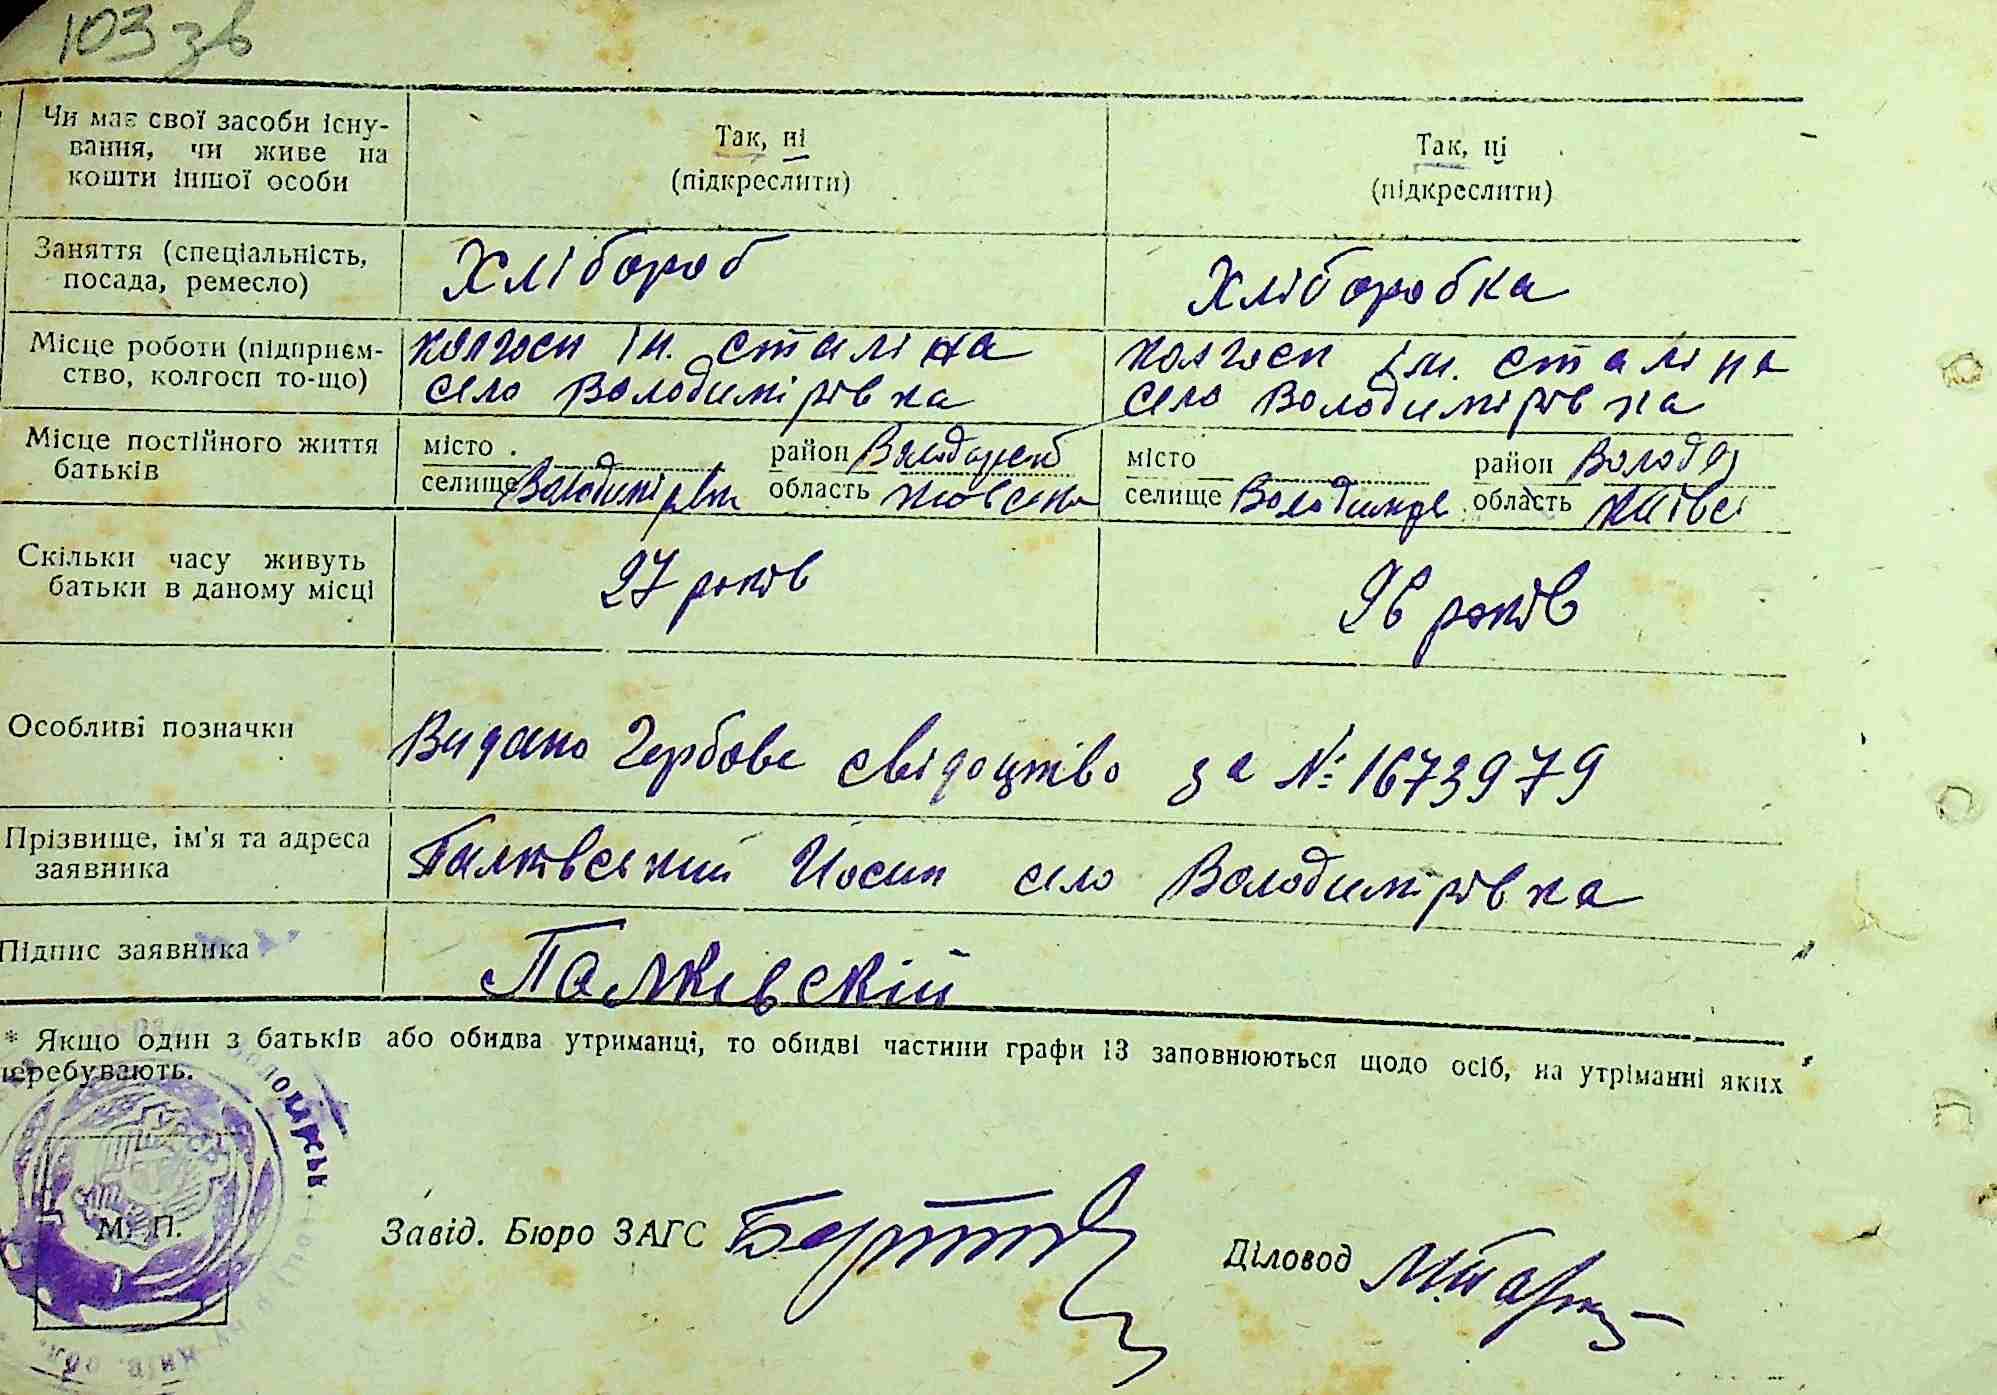 103 зв
Чи має свої засоби існу-
вання, чи живе на
кошти іншої особи
Так, ні
(підкреслити)
Так, ні
(підкреслити)
Заняття (спеціальність,
посада, ремесло)
Хлібороб
Хліборобка
Місце роботи (підприєм-
ство, колгосп то-що)
колгосп ім. сталіна
село Володимірівка
колгосп ім. сталіна
село Володимірівка
Місце постійного життя
батьків
місто
район
селище Володимірівка область
місто
район Волода
селище Володимірв область Київсі
Скільки часу живуть
батьки в даному місці
27 років
26 років
Особливі позначки
Видано Гербове свідоцтво за № 1673979
Прізвище, ім'я та адреса
заявника
Палківський Йосип село Володимірівка
Підпис заявника
Палківскій
* Якщо один з батьків або обидва утриманці, то обидві частини графи 13 заповнюються щодо осіб, на утріманні яких
перебувають.
М. П.
Завід. Бюро ЗАГС
Діловод